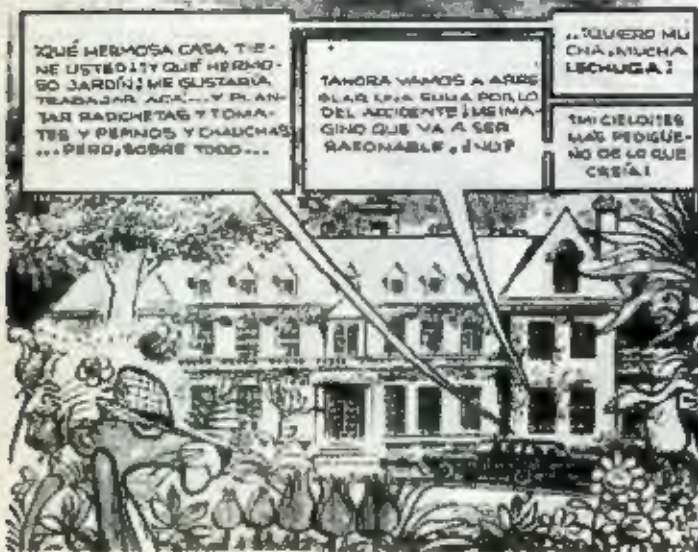 ¡QUÉ HERMOSA CASA TIE-
NE USTED! ¡Y QUÉ HERMO-
SO JARDÍN! ¡ME GUSTARÍA
TRABAJAR ACÁ!... Y PLAN-
TAR RADICHETAS Y TOMA-
TES Y PEPINOS Y CHAUCHAS
...PERO, SOBRE TODO...
¡AHORA VAMOS A ARRE
GLAR UNA SUMA POR LO
DEL ACCIDENTE! ¡ME IMA-
GINO QUE VA A SER
RAZONABLE, ¿NO?
...¡QUIERO MU
CHA, MUCHA
LECHUGA!
¡MI CIELO! ¡ES
MÁS PEDIGÜE-
ÑO DE LO QUE
CREÍA!